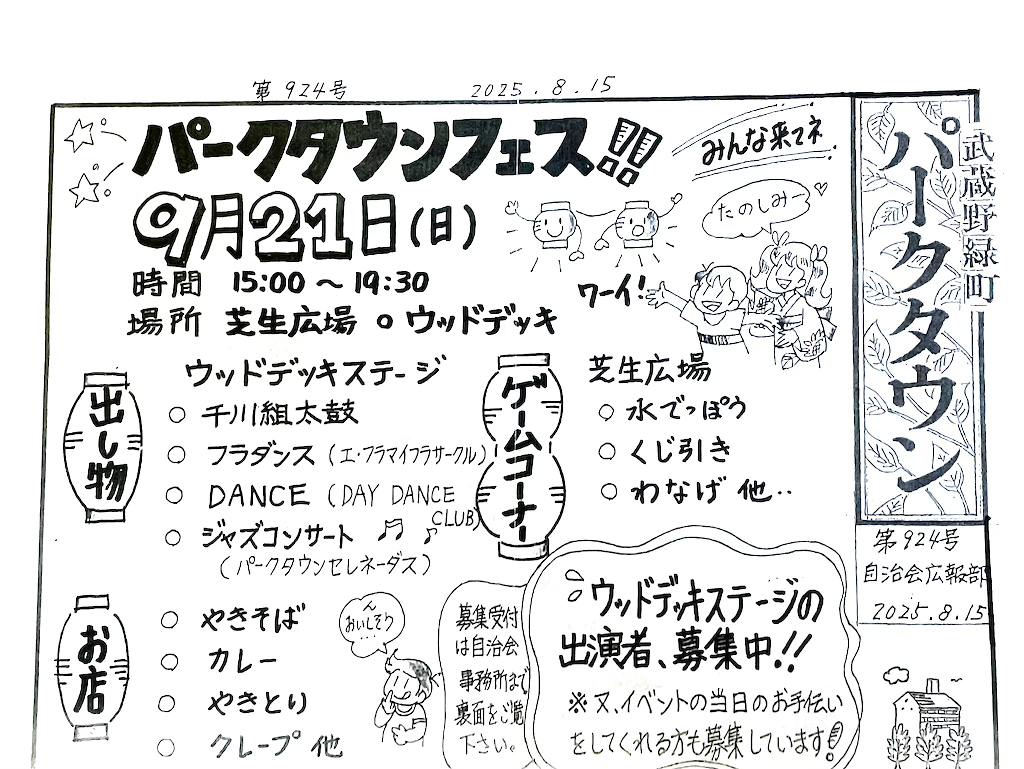 第924号 2025.8.15
パークタウンフェス!!
みんな来てネ
9月21日(日)
たのしみー
時間 15:00～19:30
ワーイ!
場所 芝生広場 。ウッドデッキ
出し物
ウッドデッキステージ
○ 千川組太鼓
○ フラダンス(エ・フラマイフラサークル)
○ DANCE (DAY DANCE
CLUB)
○ ジャズコンサート
(パークタウンセレネーダス)
ゲームコーナー
芝生広場
○ 水でっぽう
○ くじ引き
○ わなげ 他‥
お店
○ やきそば
○ カレー
○ やきとり
○ クレープ 他
ん
おいしそう
募集受付
は自治会
事務所まで
裏面をご覧
下さい。
ウッドデッキステージの
出演者、募集中!!
※又、イベントの当日のお手伝い
をしてくれる方も募集しています!
武蔵野緑町
パークタウン
第924号
自治会広報部
2025.8.15